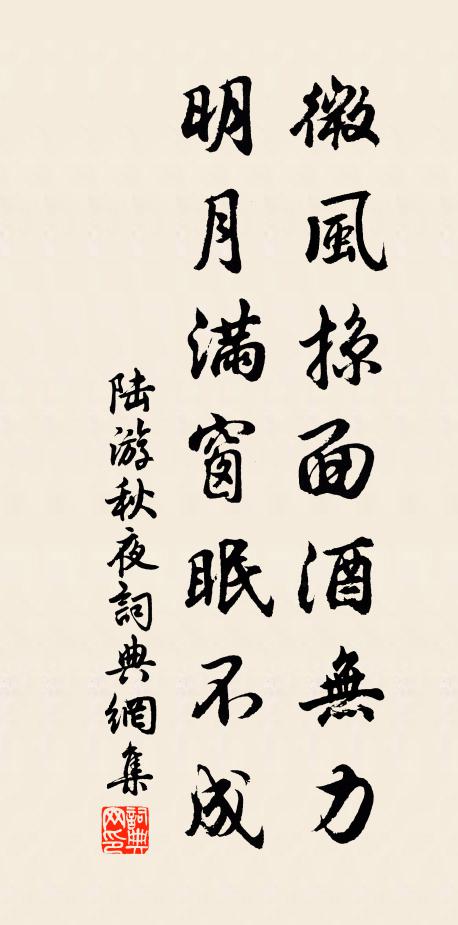 微風掠面酒無力
明月滿窗眠不成
陆游秋夜詞典網集
詞典網印